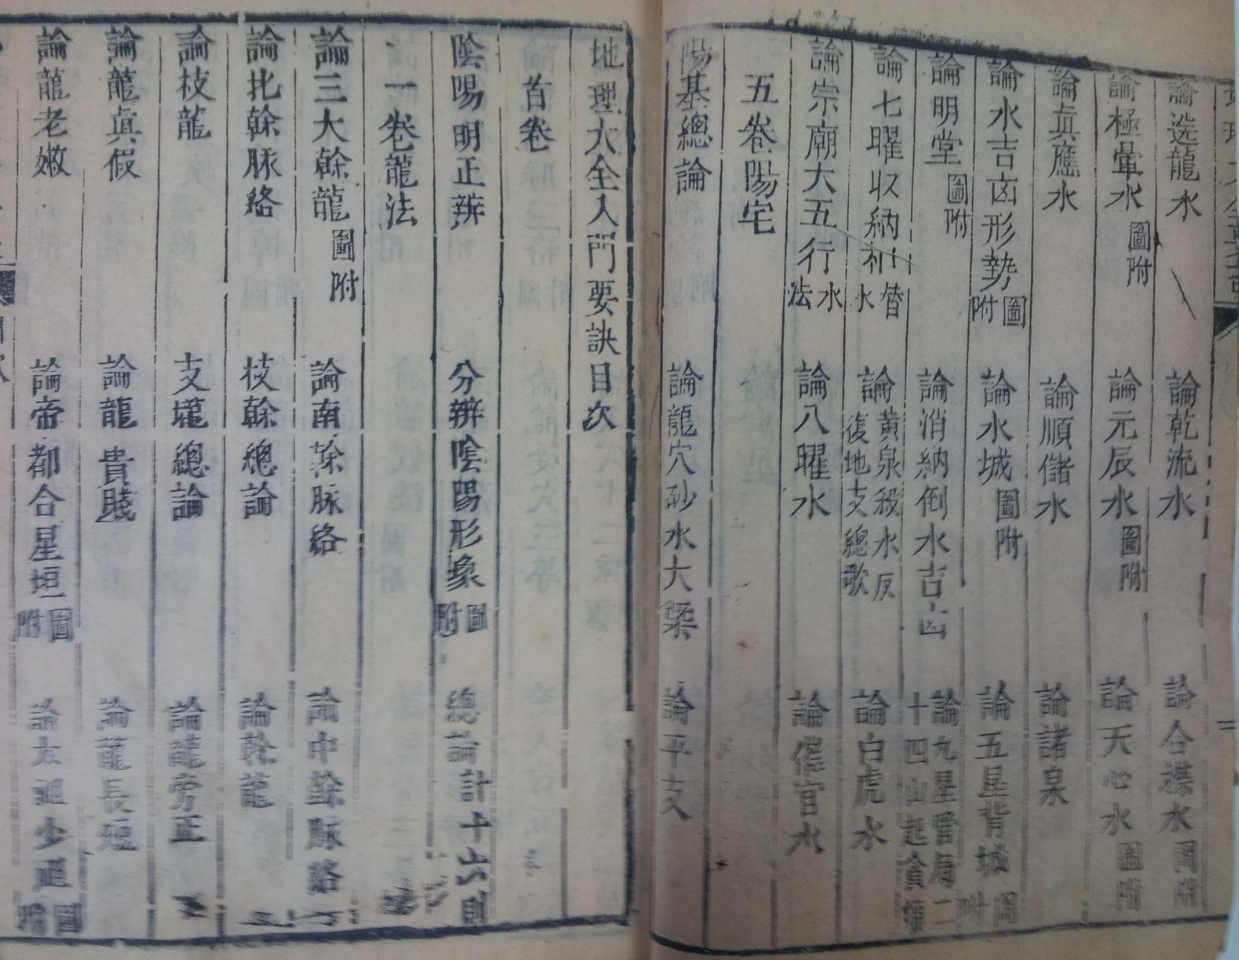 論逆龍水 論乾流水 論合襟水圖附
論極暈水圖附 論元辰水圖附 論天心水圖附
論真應水 論順儲水 論諸泉
論水吉凶形勢圖附 論水城圖附 論五星背城圖附
論明堂圖附 論消納倒水吉凶 論九星 十四山起貪
論七曜收納 水 論黃泉殺水反復地支總歌 論白虎水
論宗廟大五行水法 論八曜水 論催官水
五卷陽宅
陽基總論 論龍穴砂水大槩 論平支
地理大全入門要訣目次
首卷
陰陽明正辨 分辨陰陽形象圖附 總論計十六則
一卷龍法
論三大幹龍圖附 論南幹脉絡 論中幹脉絡
論北幹脉絡 枝幹總論 論幹龍
論枝龍 支壠總論 論龍旁正
論龍真假 論龍貴賤 論龍長短
論龍老嫩 論帝都合星垣圖附 論太祖少祖圖附